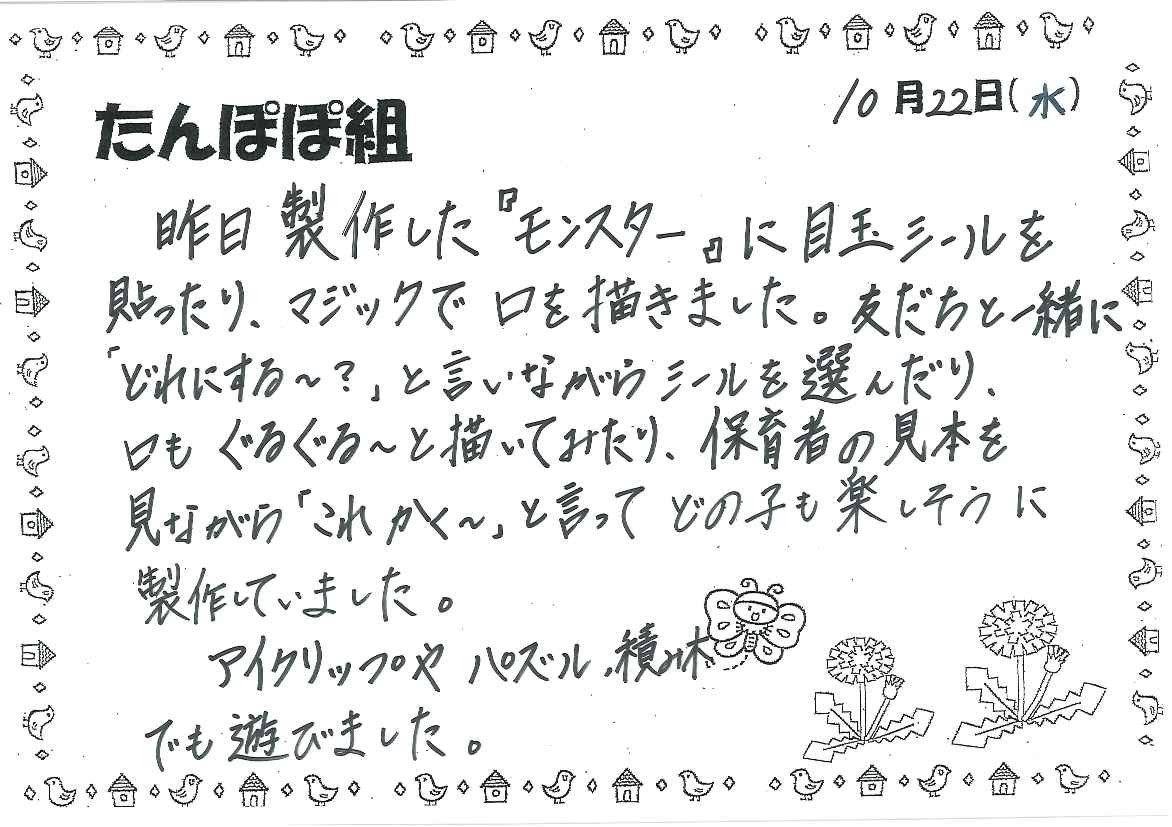 たんぽぽ組
10月22日(水)
昨日製作した『モンスター』に目玉シールを
貼ったり、マジックで口を描きました。友だちと一緒に
「どれにする～？」と言いながらシールを選んだり、
口もぐるぐる～と描いてみたり、保育者の見本を
見ながら「これかく～」と言ってどの子も楽しそうに
製作していました。
アイクリップやパズル、積み木
でも遊びました。